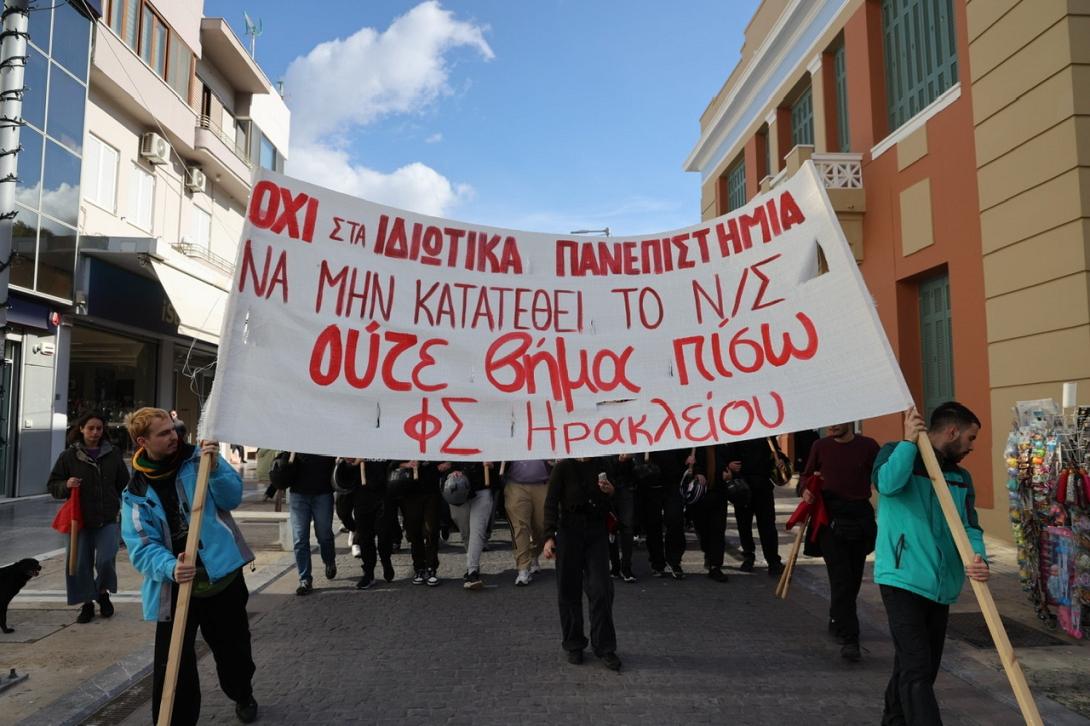 ΟΧΙ ΣΤΑ ΙΔΙΩΤΙΚΑ ΠΑΝΕΠΙΣΤΗΜΙΑ
ΝΑ ΜΗΝ ΚΑΤΑΤΕΘΕΙ ΤΟ Ν/Σ
ούτε βήμα πίσω
ΦΣ Ηρακλείου